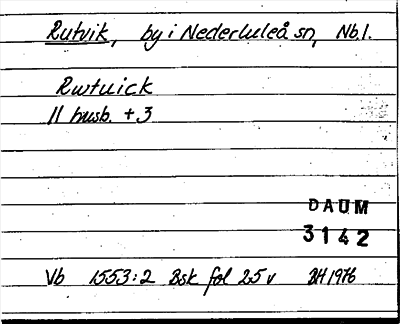 Rutvik, by i Nederluleå sn, Nb.l.
Rwtuick
11 husb. + 3
DAUM
3142
Vb 1553:2 Bsk fol 25 v BH 1976